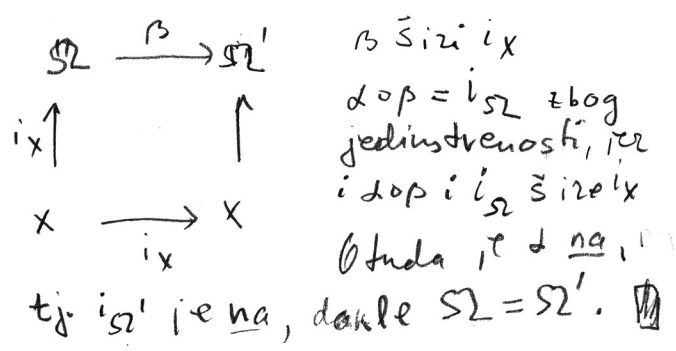 β
Ω → Ω' β širi i_X
i_X ↑ ↑ α∘β = i_Ω zbog
jedinstvenosti, jer
X → X i α∘β i i_Ω šire i_X
i_X Otuda je α na,
tj. i_Ω' je na, dakle Ω = Ω'.